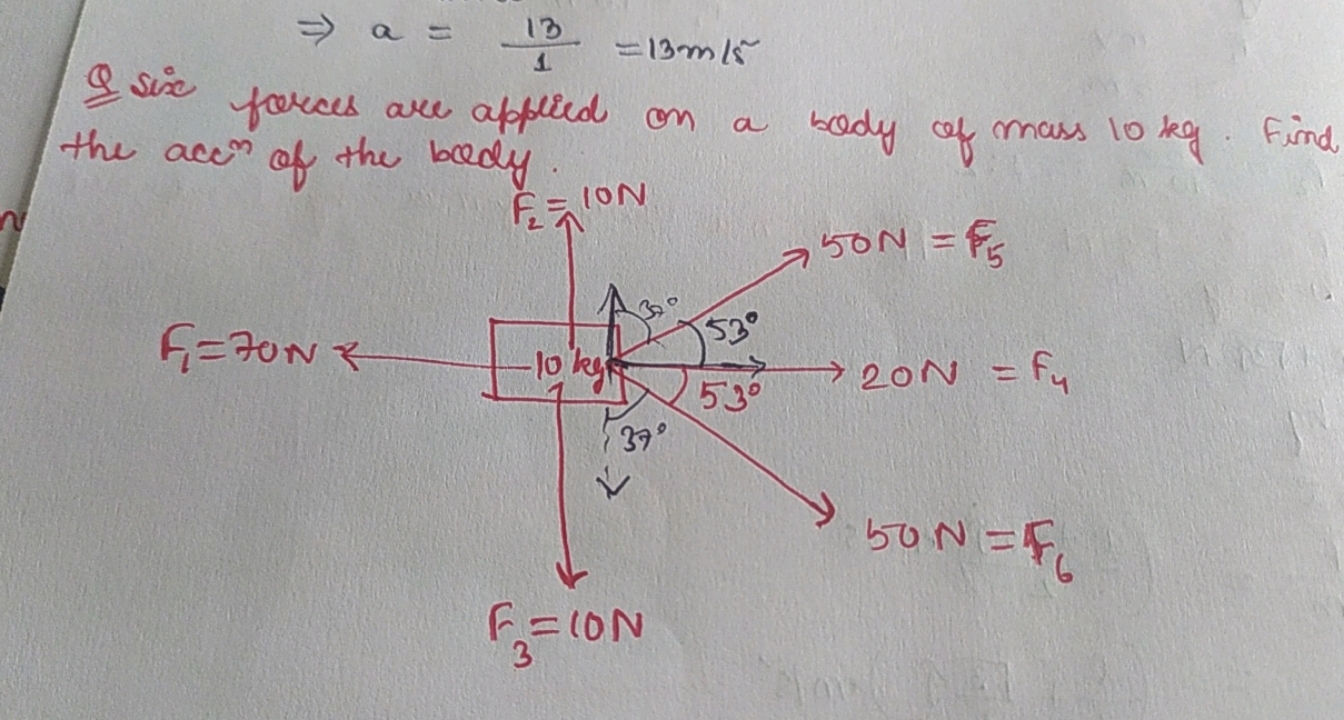 ⇒ a = 13/1 = 13m/s²
Q six forces are applied on a body of mass 10 kg. Find
the accⁿ of the body.
F₂ = 10N
50N = F₅
37°
53°
F₁ = 70N
10 kg
20N = F₄
53°
37°
50N = F₆
F₃ = 10N